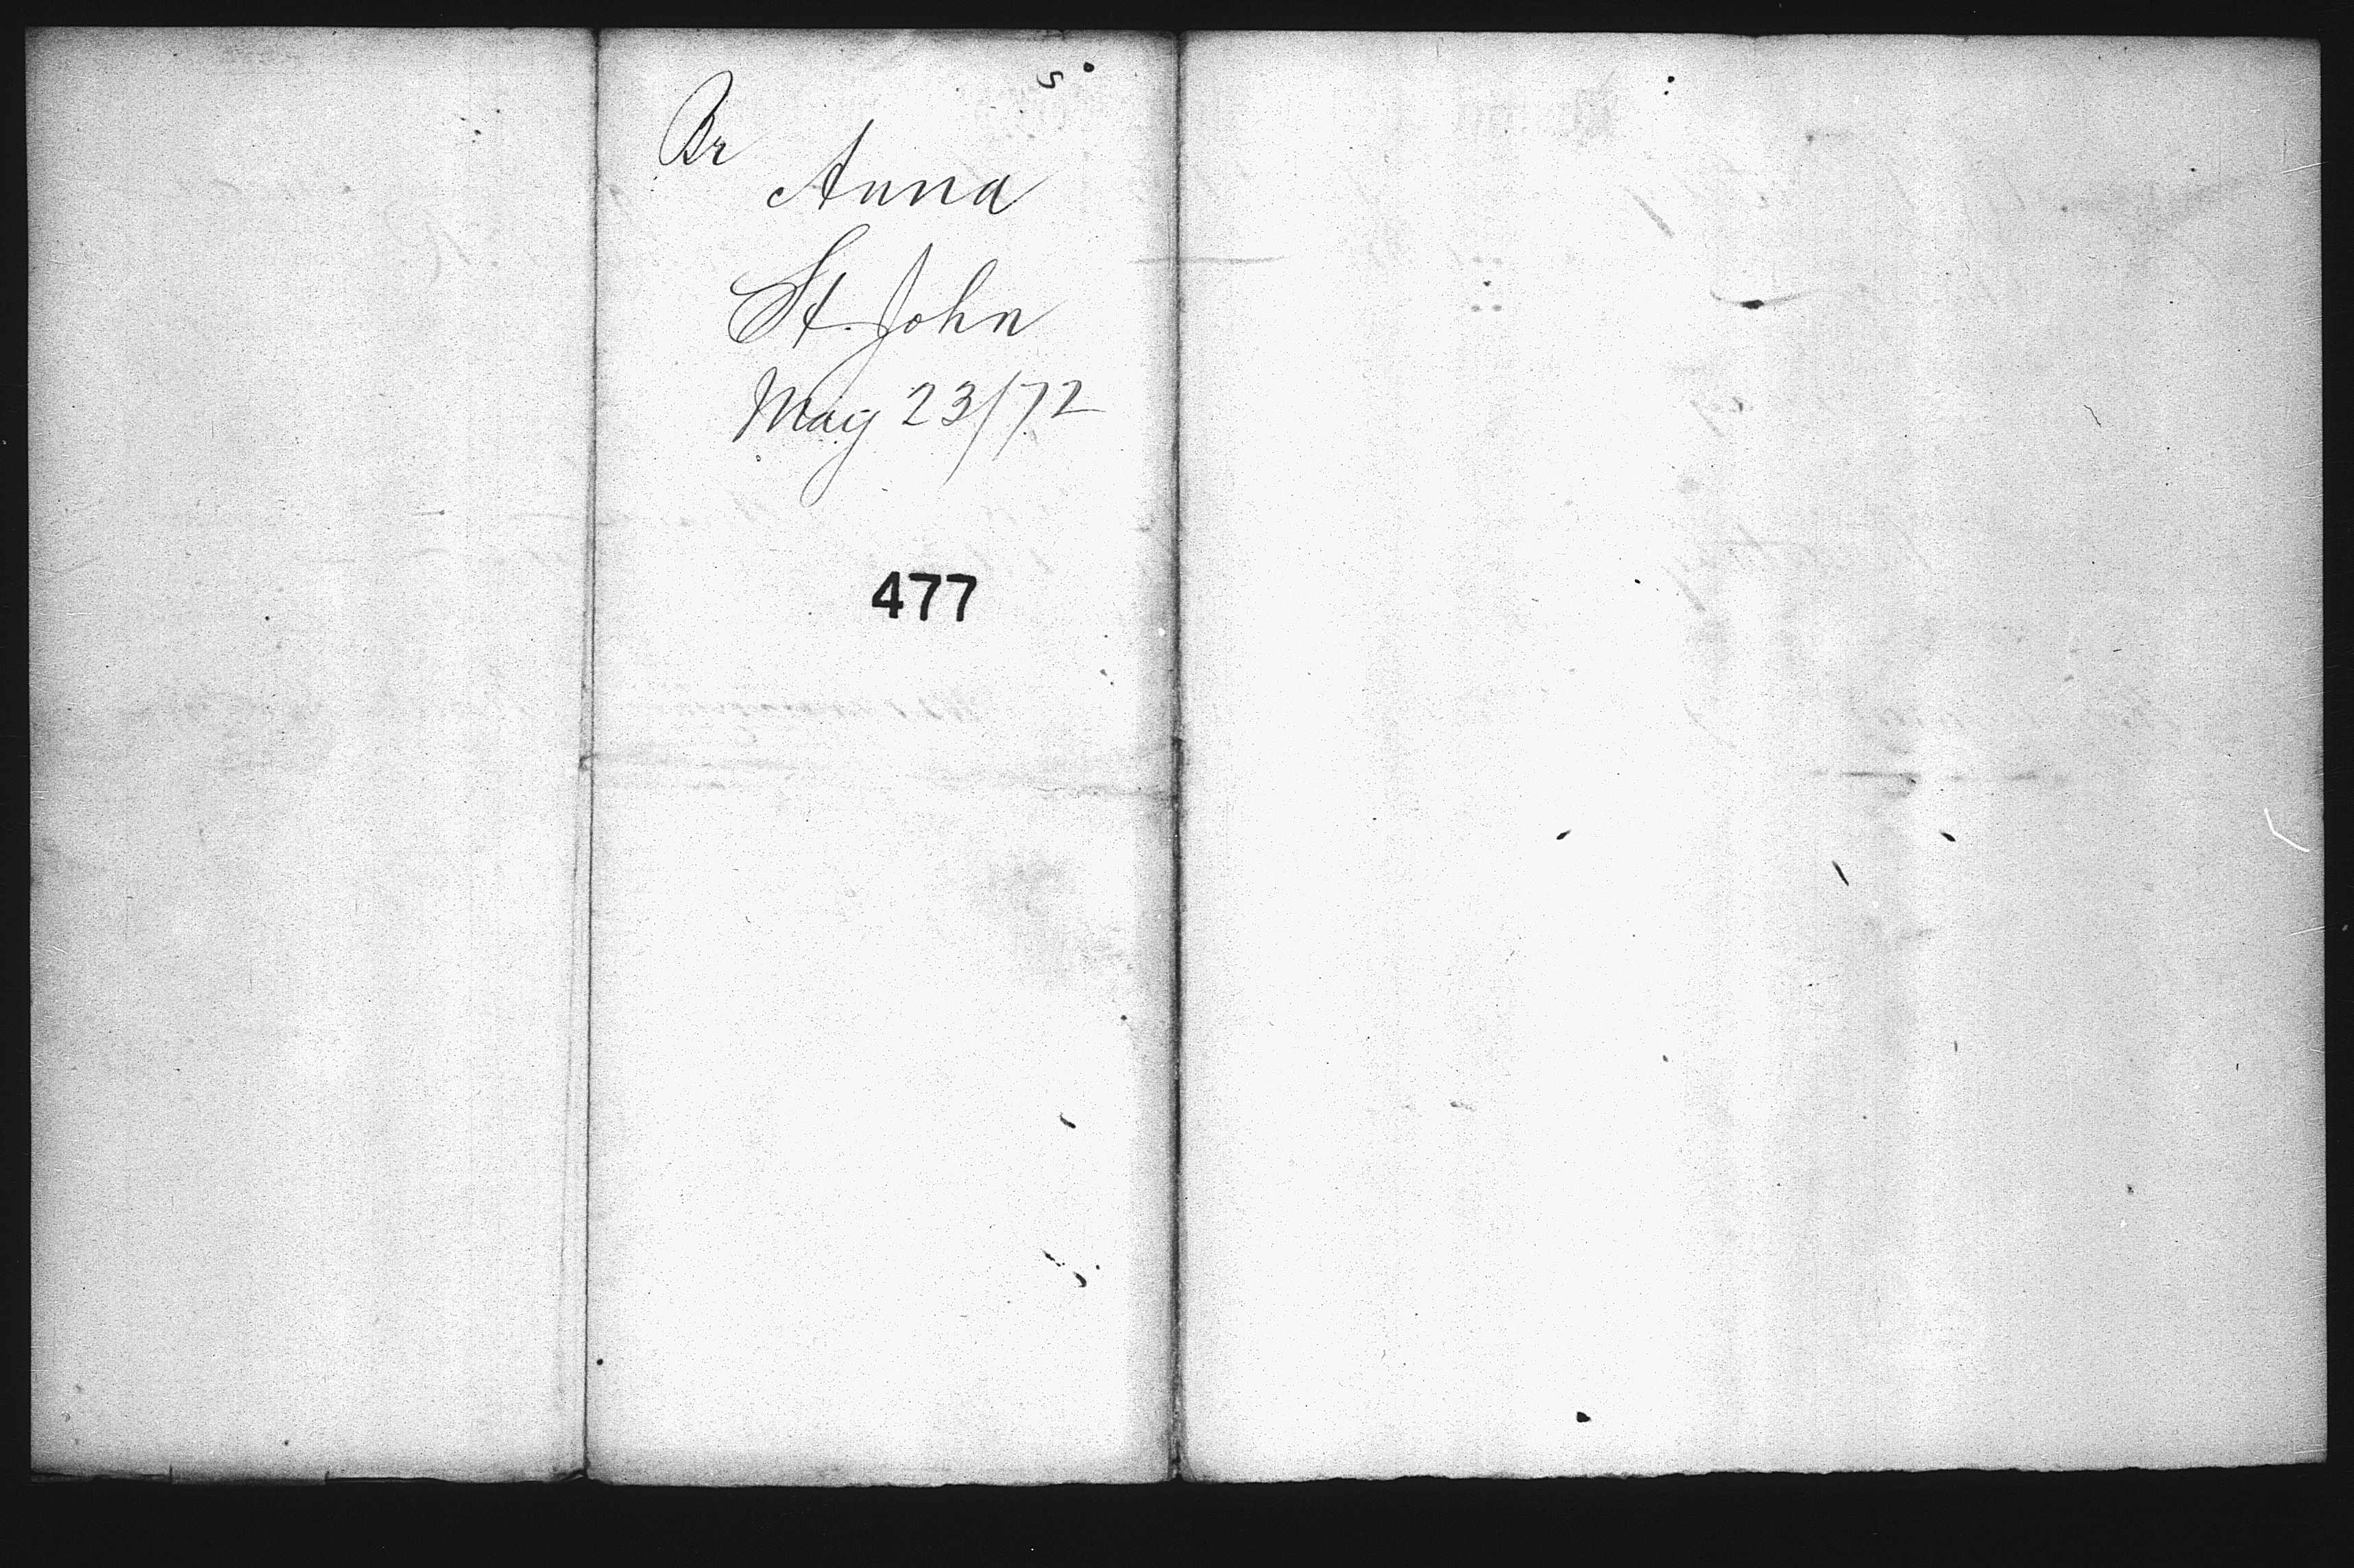 Br
Anna
St. John
May 23/72
477